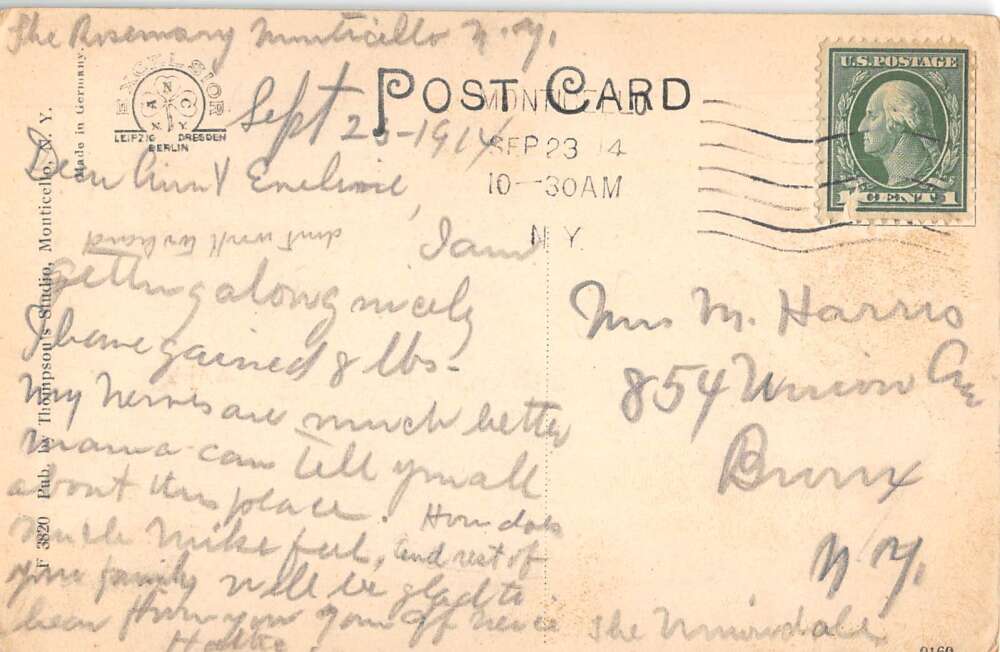 The Rosemary Monticello N.Y.
Sept 23-1914
EXCELSIOR
A N C
N. Y.
LEIPZIG DRESDEN
BERLIN
POST CARD
MONTICELLO
SEP 23 14
10-30AM
N.Y.
U.S. POSTAGE
1 CENT 1
Made in Germany.
F 3820 Pub. by Thompson's Studio, Monticello, N. Y.
Dear Aunt
I am
getting along nicely
I have gained 8 lbs-
My Nerves are much better
mama can tell you all
about this place. How does
uncle Mike feel, and rest of
your family will be glad to
hear from you your aff niece
Mrs M. Harris
854 Union Ave
Bronx
N.Y.
The
0160